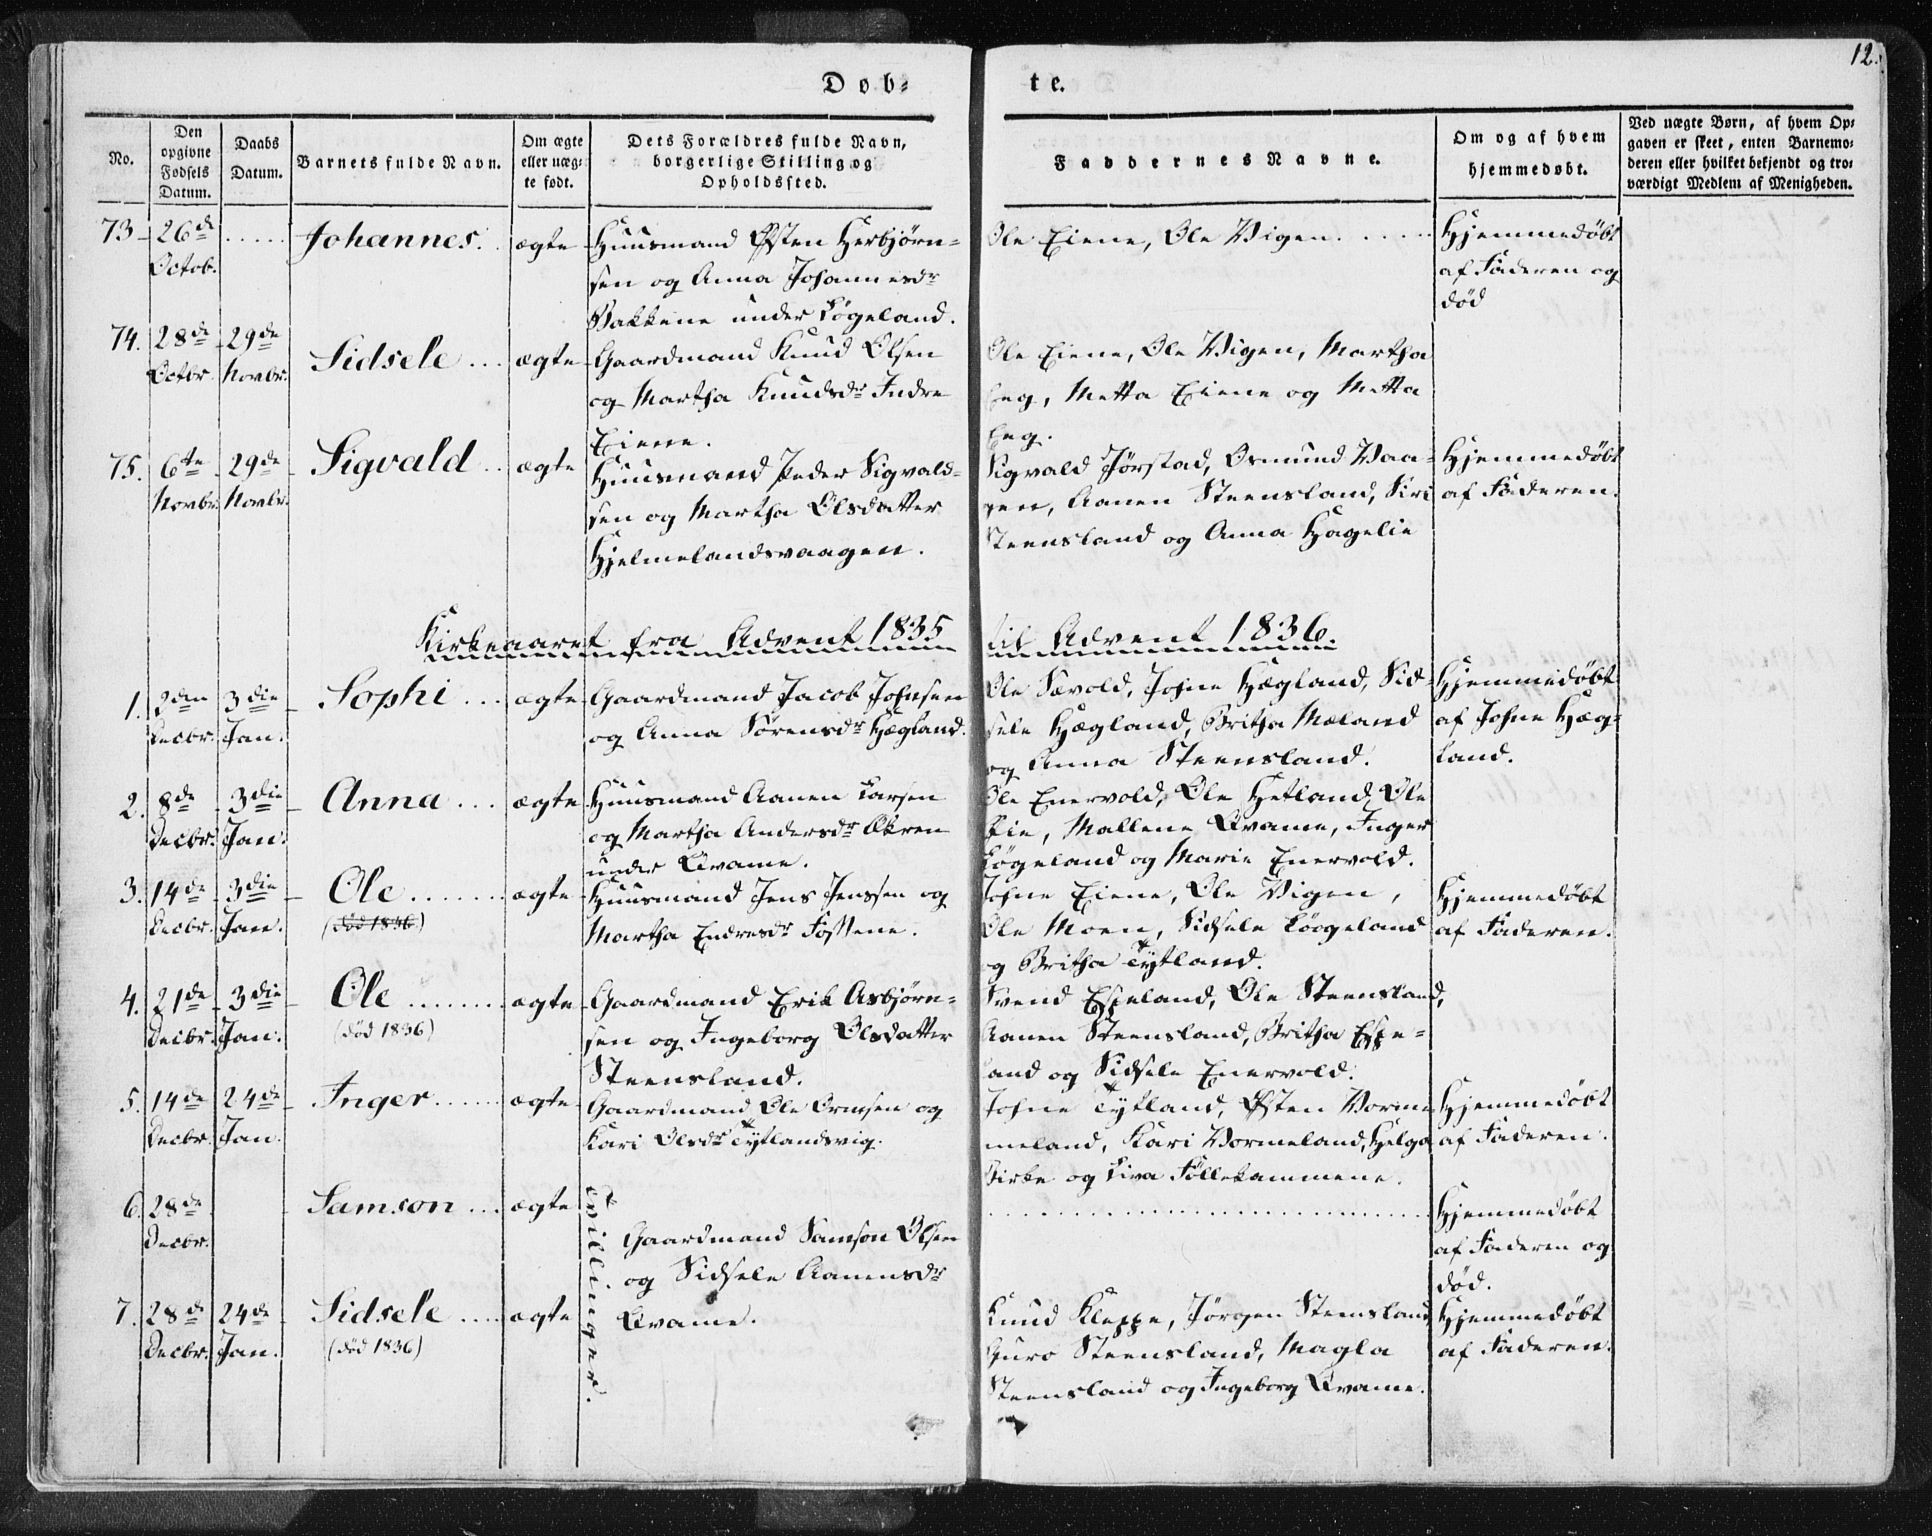 12.
Døb- te.
No.
Den opgivne Fødsels Datum.
Daabs Datum.
Barnets fulde Navn.
Om ægte eller uægte født.
Dets Forældres fulde Navn, borgerlige Stilling og Opholdssted.
Faddernes Navne.
Om og af hvem hjemmedøbt.
Ved uægte Børn, af hvem Opgaven er skeet, enten Barnemoderen eller hvilket bekjendt og troværdigt Medlem af Menigheden.
73 26de Octob. ..... Johannes. ægte
Huusmand Østen Herbjørn=
sen og Anna Johannesdr
Bakkene under Løgeland.
Ole Eiene, Ole Vigen.....
Hjemmedøbt
af Faderen og
død
74. 28de Octbr. 29de Novbr. Sidsele ... ægte
Gaardmand Knud Olsen
og Martha Knudsdr Indre
Eiene.
Ole Eiene, Ole Vigen, Martha
Eeg, Metta Eiene og Metta
Eeg.
75. 6te Novbr. 29de Novbr. Sigvald .. ægte
Huusmand Peder Sigvald=
sen og Martha Olsdatter
Hjelmelandsvaagen.
Sigvald Jørstad, Osmund Vaa=
gen, Aanen Steensland, Siri
Steensland og Anna Hagelie
Hjemmedøbt
af Faderen.
Kirkeaaret fra Advent 1835 til Advent 1836.
1. 2den Decbr. 3die Jan. Sophi ... ægte
Gaardmand Jacob Johnsen
og Anna Sørensdr Hægland.
Ole Sævold, Johne Hægland, Sid=
sele Hægland, Britha Mæland
og Anna Steensland.
Hjemmedøbt
af Johne Hæg=
land.
2. 8de Decbr. 3die Jan. Anna ... ægte
Huusmand Aanen Larsen
og Martha Andersdr Ækren
under Qvame.
Ole Enervold, Ole Hetland, Ole
Lie, Mallene Qvame, Inger
Løgeland og Marie Enervold.
3. 14de Decbr. 3die Jan. Ole ....... ægte
(død 1836)
Huusmand Jens Jenssen og
Martha Endresdr Fossene.
Johne Eiene, Ole Vigen,
Ole Moen, Sidsele Løogeland
og Britha Tytland.
Hjemmedøbt
af Faderen.
4. 21de Decbr. 3die Jan. Ole ....... ægte
(død 1836)
Gaardmand Erik Asbjørn=
sen og Ingeborg Olsdatter
Steensland.
Svend Espeland, Ole Steensland,
Aanen Steensland, Britha Espe=
land og Sidsele Enervold.
5. 14de Decbr. 24de Jan. Inger ...... ægte
Gaardmand Ole Ormsen og
Kari Olsdr Tytlandsvig.
Johne Tytland, Østen Vorme
meland, Kari Vormeland, Helga
Birke og Liva Føllekammene.
Hjemmedøbt
af Faderen.
6. 28de Decbr. Samson ... ægte
Tvillinger.
Gaardmand Samson Olsen
og Sidsele Aanensdr
Qvame.
Hjemmedøbt
af Faderen og
død.
7. 28de Decbr. 24de Jan. Sidsele .... ægte
(død 1836)
Knud Kleppe, Jørgen Stensland
Guro Steensland, Magla
Steensland og Ingeborg Qvame.
Hjemmedøbt
af Faderen.